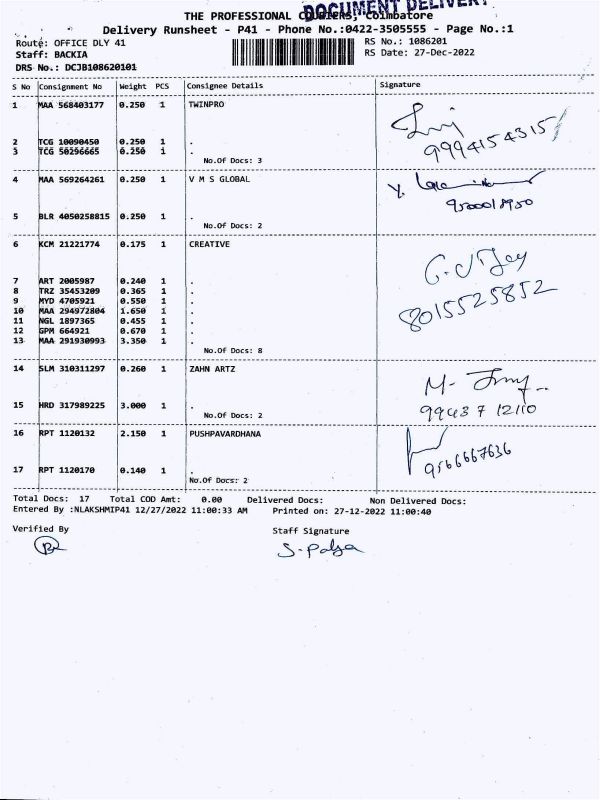 DOCUMENT DELIVERY
THE PROFESSIONAL COURIERS, Coimbatore
Delivery Runsheet - P41 - Phone No.:0422-3505555 - Page No.:1
Route: OFFICE DLY 41 RS No.: 1086201
Staff: BACKIA RS Date: 27-Dec-2022
DRS No.: DCJB108620101
S No Consignment No Weight PCS Consignee Details Signature
1 MAA 568403177 0.250 1 TWINPRO
9994154315
2 TCG 10090450 0.250 1 .
3 TCG 50296665 0.250 1 .
No.Of Docs: 3
4 MAA 569264261 0.250 1 V M S GLOBAL
5 BLR 4050258815 0.250 1 .
No.Of Docs: 2
6 KCM 21221774 0.175 1 CREATIVE
7 ART 2005987 0.240 1 .
8 TRZ 35453209 0.365 1 .
9 MYD 4705921 0.550 1 .
10 MAA 294972804 1.650 1 .
11 NGL 1897365 0.455 1 .
12 GPM 664921 0.670 1 .
13 MAA 291930993 3.350 1 .
8015525852
No.Of Docs: 8
14 SLM 310311297 0.260 1 ZAHN ARTZ
15 HRD 317989225 3.000 1 .
99437 12110
No.Of Docs: 2
16 RPT 1120132 2.150 1 PUSHPAVARDHANA
9566667636
17 RPT 1120170 0.140 1 .
No.Of Docs: 2
Total Docs: 17 Total COD Amt: 0.00 Delivered Docs: Non Delivered Docs:
Entered By :NLAKSHMIP41 12/27/2022 11:00:33 AM Printed on: 27-12-2022 11:00:40
Verified By Staff Signature